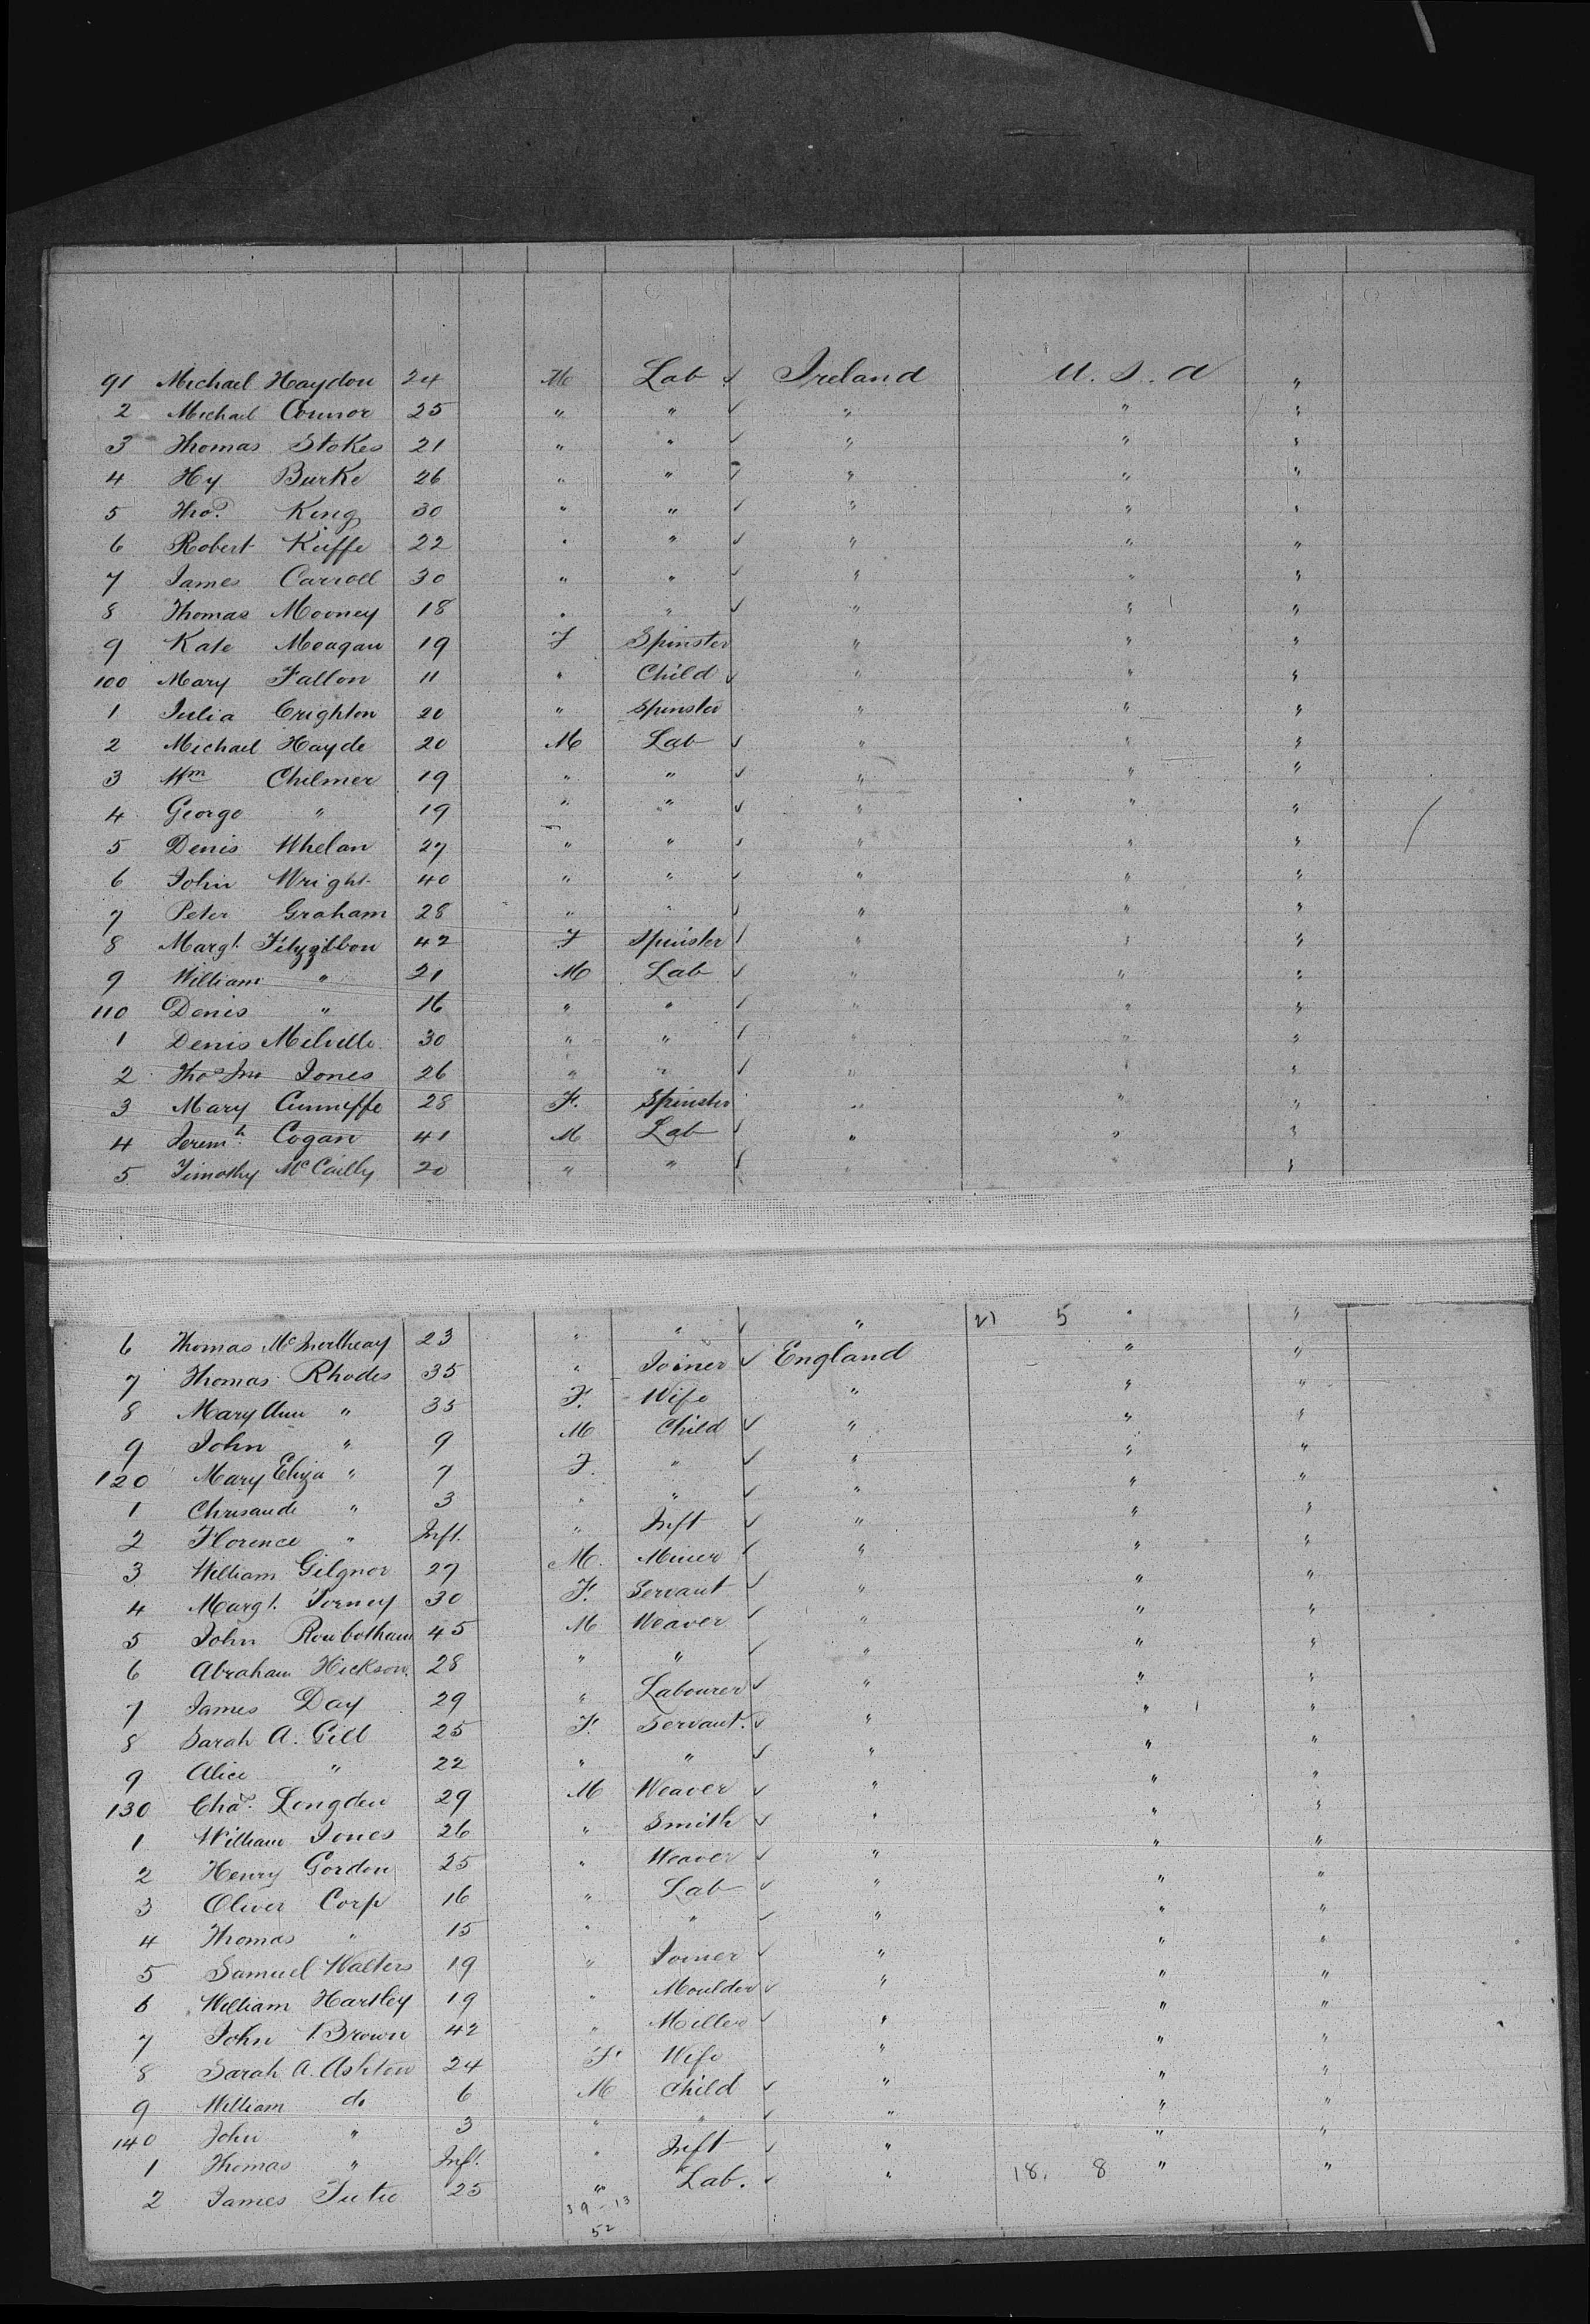 91 Michael Haydon 24 M Lab ✓ Ireland U.S.A "
2 Michael Connor 25 " " ✓ " " "
3 Thomas Stokes 21 " " ✓ " " "
4 Hy Burke 26 " " ✓ " " "
5 Thos. King 30 " " ✓ " " "
6 Robert Kieffe 22 " " ✓ " " "
7 James Carroll 30 " " ✓ " " "
8 Thomas Mooney 18 " " ✓ " " "
9 Kate Meagan 19 F Spinster " " "
100 Mary Fallon 11 " Child ✓ " " "
1 Julia Crighton 20 " Spinster " " "
2 Michael Hayde 20 M Lab ✓ " " "
3 Wm Chilmer 19 " " ✓ " " "
4 George " 19 " " ✓ " " "
5 Denis Whelan 27 " " ✓ " " "
6 John Wright 40 " " ✓ " " "
7 Peter Graham 28 " " ✓ " " "
8 Margt. Fitzgibbon 42 F Spinster ✓ " " "
9 William " 21 M Lab ✓ " " "
110 Denis " 16 " " ✓ " " "
1 Denis 30 " " ✓ " " "
2 Thos Jno Jones 26 " " ✓ " " "
3 Mary Cunniffe 28 F. Spinster " " "
4 Jeremh. Cogan 41 M Lab ✓ " " "
5 Timothy 20 " " ✓ " " "
6 Thomas 23 " " ✓ " 21 5 " "
7 Thomas Rhodes 35 " Joiner ✓ England " "
8 Mary Ann " 35 F. Wife " " "
9 John " 9 M Child ✓ " " "
120 Mary Eliza " 7 F. " ✓ " " "
1 " 3 " " ✓ " " "
2 Florence " Inft. " Inft ✓ " " "
3 William Gilgnor 27 M. Miner ✓ " " "
4 Margt. 30 F. Servant ✓ " " "
5 John Rowbotham 45 M Weaver ✓ " " "
6 Abraham Hickson 28 " " ✓ " " "
7 James Day 29 " Labourer ✓ " " "
8 Sarah A. Gill 25 F. Servant. ✓ " " "
9 Alice " 22 " " ✓ " " "
130 Chas. Longden 29 M Weaver ✓ " " "
1 William Jones 26 " Smith ✓ " " "
2 Henry Gordon 25 " Weaver ✓ " " "
3 Oliver Corp 16 " Lab ✓ " " "
4 Thomas " 15 " " ✓ " " "
5 Samuel Walters 19 " Joiner ✓ " " "
6 William Hartley 19 " Moulder ✓ " " "
7 John Brown 42 " Miller ✓ " " "
8 Sarah A. Ashton 24 F. Wife " " "
9 William do 6 M Child ✓ " " "
140 John " 3 " " ✓ " " "
1 Thomas " Inft. " Inft ✓ " " "
2 James 25 " Lab. ✓ " 18. 8 " "
39 - 13
52